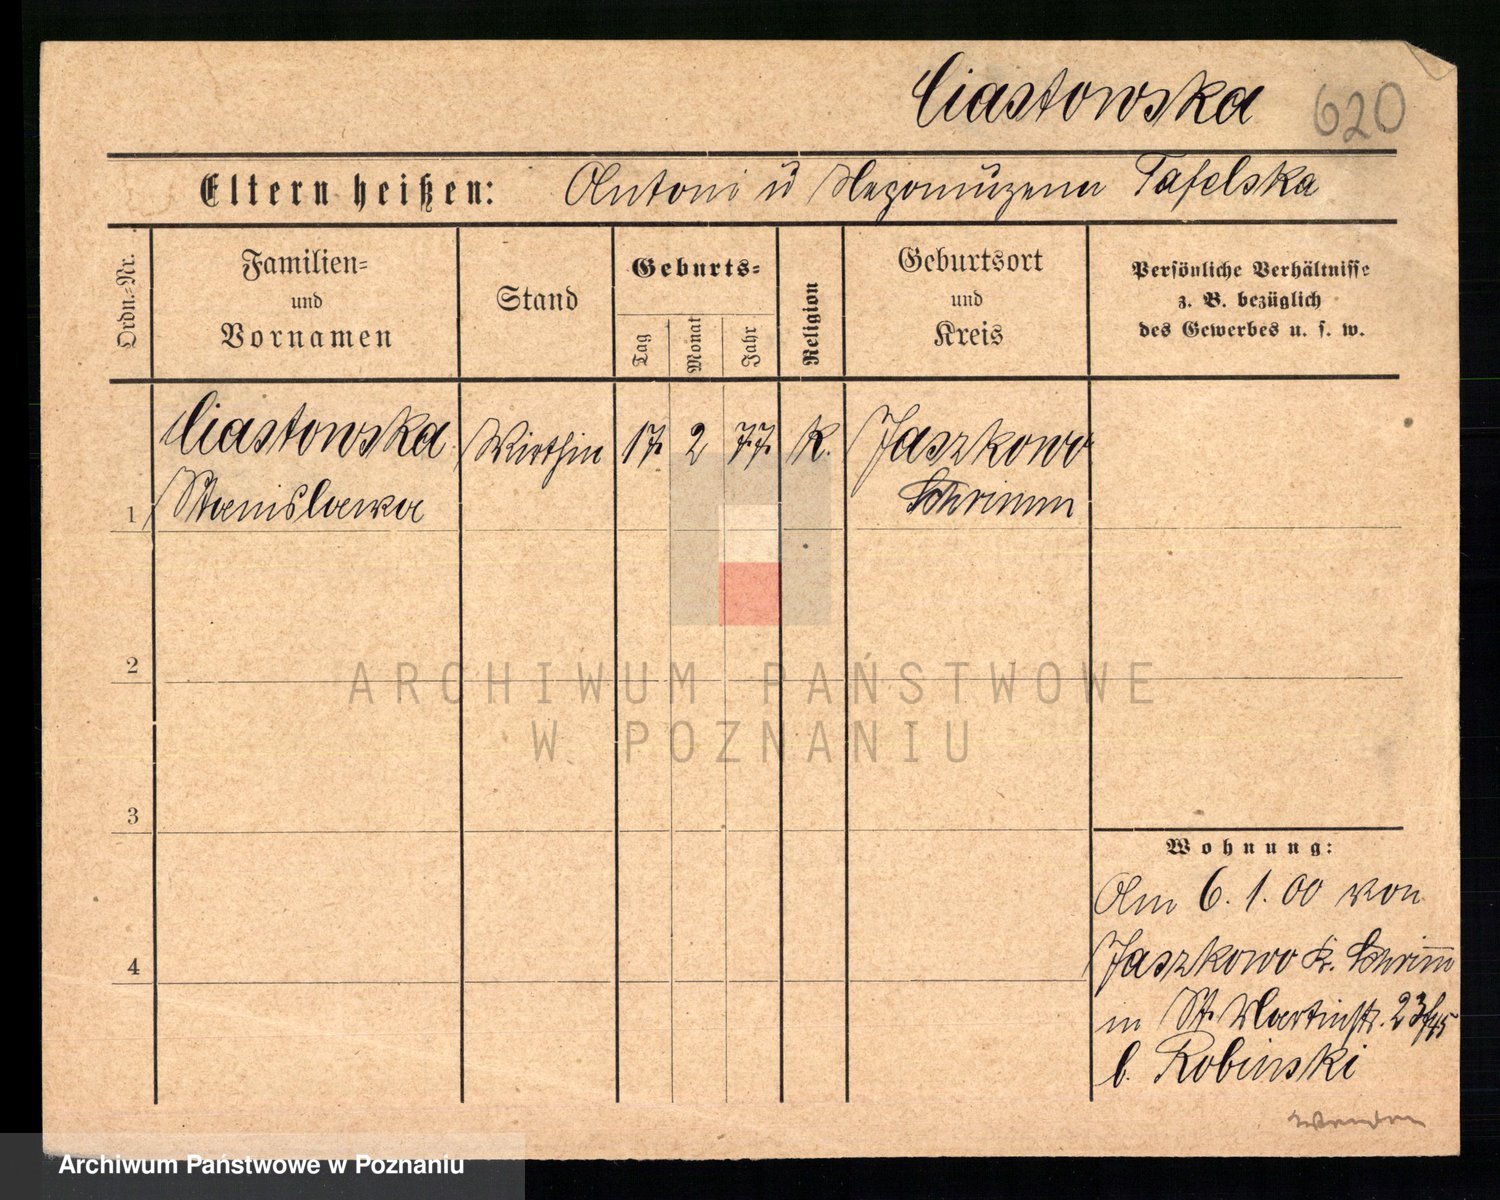 Ciastowska 620
Eltern heißen: Antoni u Nepomuzena Tafelska
Ordn.-Nr.
Familien-
und
Vornamen
Stand
Geburts-
Tag
Monat
Jahr
Religion
Geburtsort
und
Kreis
Persönliche Verhältnisse
z. B. bezüglich
des Gewerbes u. s. w.
Ciastowska Wirthin 17. 2 77. K. Jaszkowo
1 Stanislawa Schrimm
2
ARCHIWUM PAŃSTWOWE
W POZNANIU
3
Wohnung:
Am 6. 1. 00 von
4 Jaszkowo Kr. Schrim̅
in St. Martinstr. 23/45
b. Robinski
Wenden
Archiwum Państwowe w Poznaniu